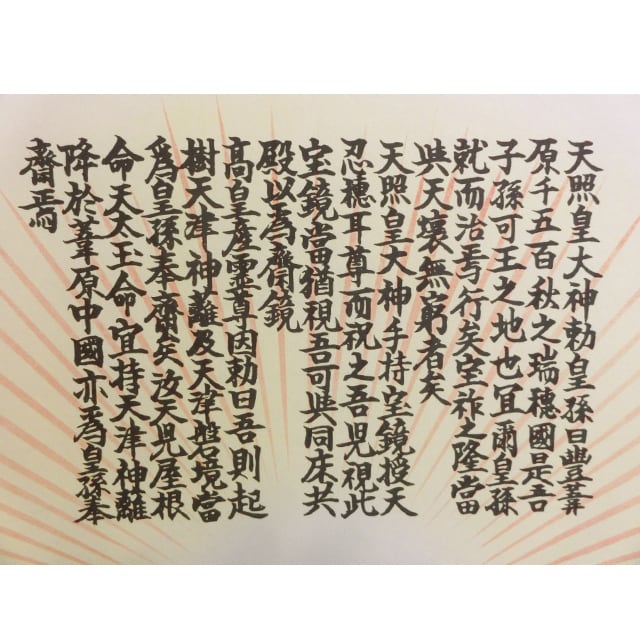 天照皇大神勅皇孫曰豐葦
原千五百秋之瑞穂國是吾
子孫可王之地也冝爾皇孫
就而治焉行矣宝祚之隆當
與天壤無窮者矣
天照皇大神手持宝鏡授天
忍穂耳尊而祝之吾児視此
宝鏡當猶視吾可與同床共
殿以為齋鏡
高皇産靈尊因勅曰吾則起
樹天津神離及天津磐境當
為皇孫奉齋矣汝天児屋根
命天太王命宜持天津神離
降於葦原中國亦為皇孫奉
齋焉